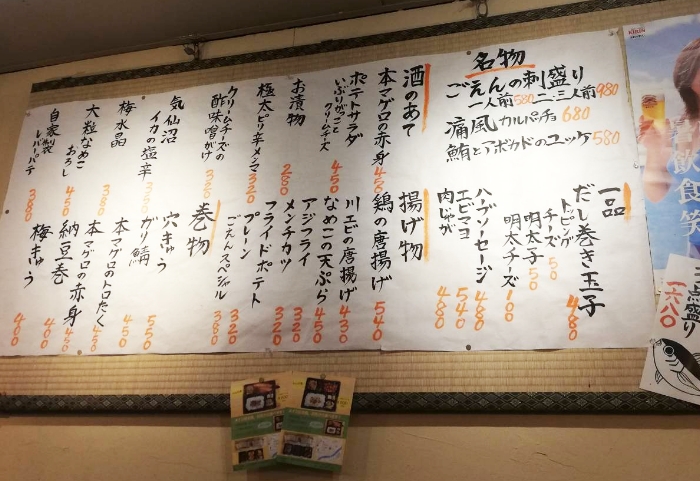 名物
ごえんの刺盛り
一人前580 二、三人前980
痛風カルパッチョ 680
鮪とアボカドのユッケ 580
酒のあて
本マグロの赤身
ポテトサラダ
いぶりがっこ
クリームチーズ 450
お漬物 280
極太ピリ辛メンマ 320
クリームチーズの
酢味噌がけ 320
気仙沼
イカの塩辛
梅水晶 380
大粒なめこ
おろし 450
自家製
レバーパテ 380
一品
だし巻き玉子 480
トッピング
チーズ 50
明太子 50
明太チーズ 100
ハーブソーセージ 480
エビマヨ 540
肉じゃが 480
揚げ物
鶏の唐揚げ 540
川エビの唐揚げ 430
なめこの天ぷら 450
アジフライ 320
メンチカツ 320
フライドポテト
プレーン 320
ごえんスペシャル 380
巻物
穴きゅう 550
ガリ鯖 450
本マグロのトロたく 450
本マグロの赤身 450
納豆巻 400
梅きゅう 400
KIRIN
飲食笑
点盛り
一六八〇